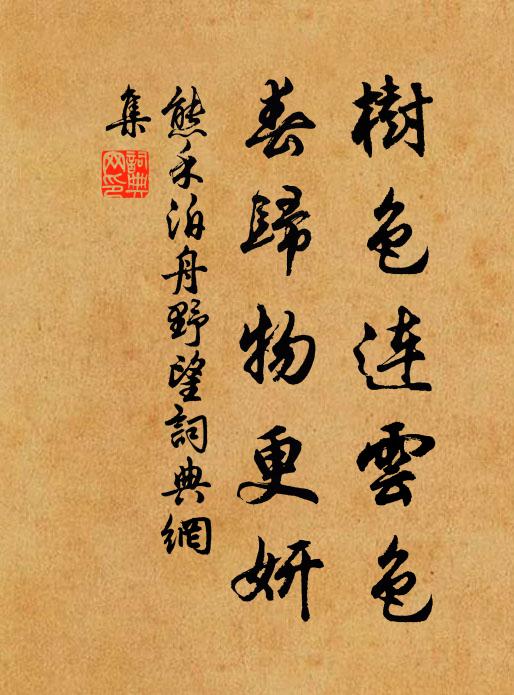 樹色連雲色
春歸物更妍
熊禾泊舟野望詞典網
集
詞典
网印